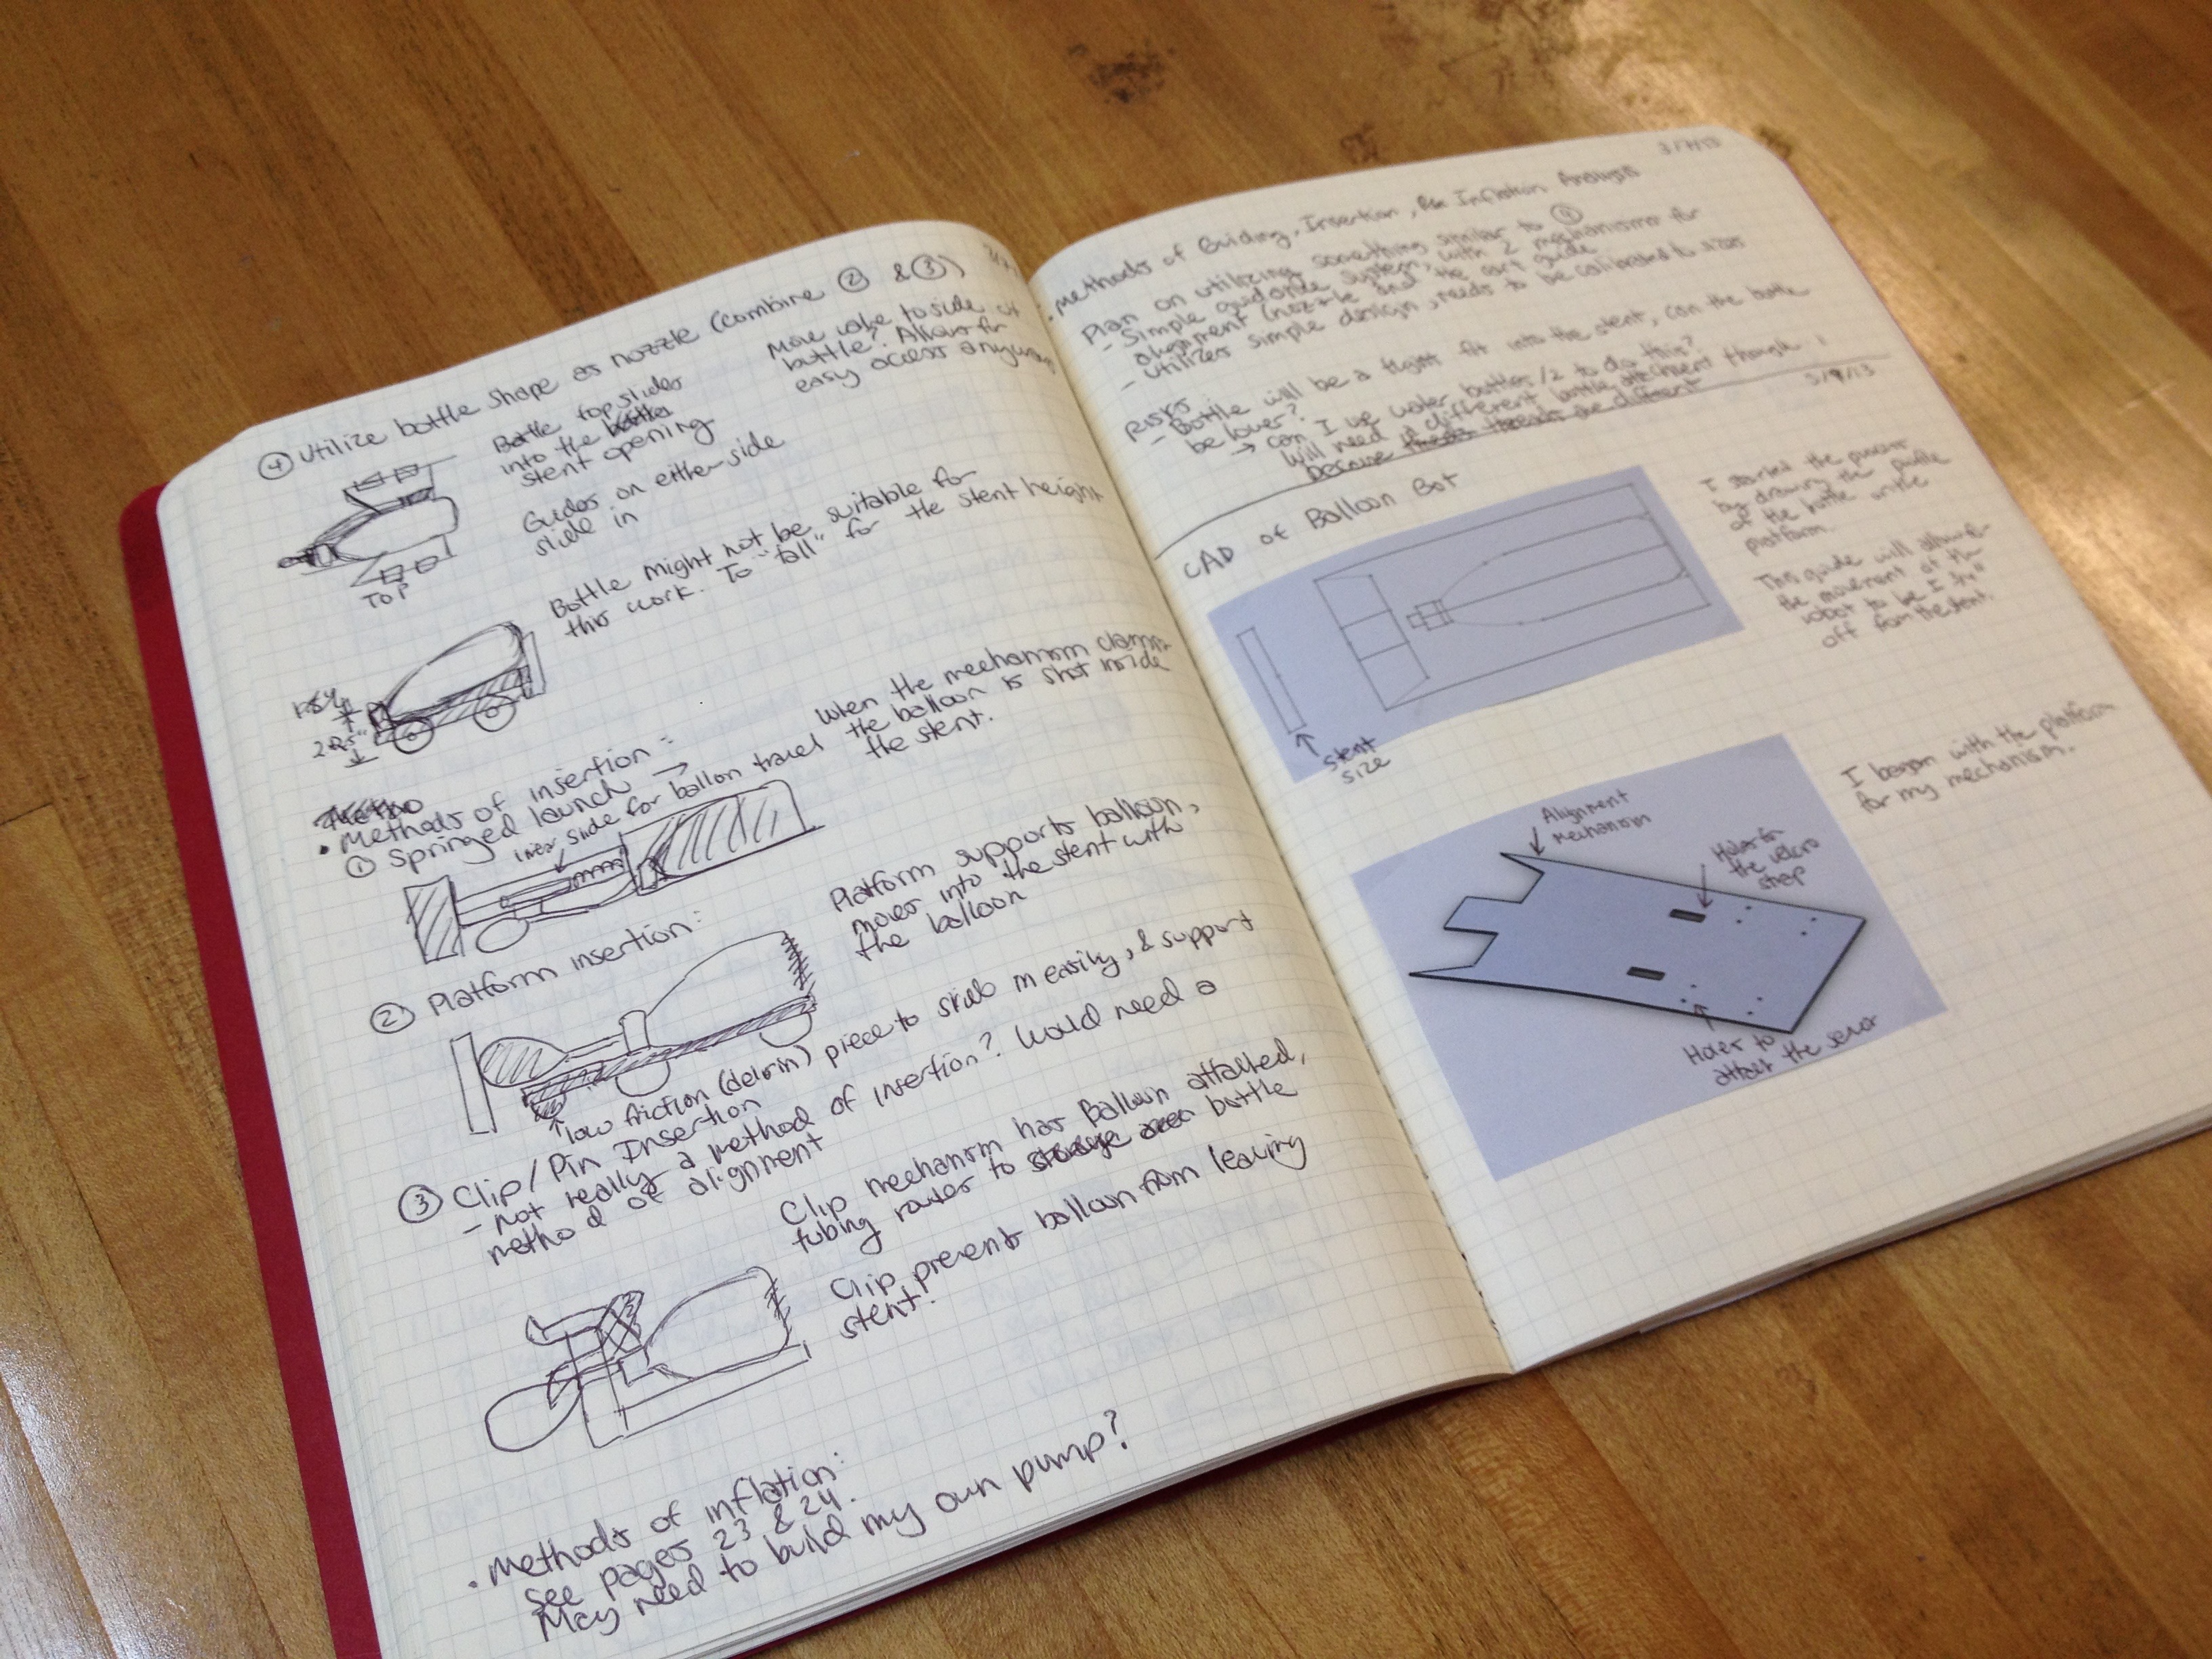 ④ Utilize bottle shape as nozzle (combine ② & ③)
Bottle top slides
into the
stent opening
Guides on either side
slide in
Move valve to side of
bottle? Allows for
easy access anyways
TOP
Bottle might not be suitable for
this work. To "tall" for the stent height
2.25"
• Methods of insertion:
① Springed launch →
inner slide for ballon travel
When the mechanism clamps
the balloon is shot inside
the stent.
② Platform insertion:
Platform supports balloon,
moves into the stent with
the balloon
low friction (delrin) piece to slide in easily, & support
③ Clip/Pin Insertion
- not really a method of insertion? Would need a
method of alignment
Clip mechanism has Balloon attatched,
tubing routes to storage area bottle
Clip prevents balloon from leaving
stent.
• Methods of inflation:
See pages 23 & 24.
May need to build my own pump?
• Methods of Guiding, Insertion, Inflation Analysis
Plan on utilizing something similar to ④
- Simple guidance system, with 2 mechanisms for
alignment (nozzle and the cart guide
- Utilizes simple design, needs to be calibrated to
Risks
- Bottle will be a tight fit into the stent, can the bottle
be lower?
→ Can I use water bottles 1/2 to do this?
Will need a different bottle attachment though
because threads are different
CAD of Balloon Bot
I started the process
by drawing the profile
of the bottle on the
platform.
This guide will allow
the movement of the
robot to be 1 3/4"
off from the stent.
stent
size
I began with the platform
for my mechanism.
Alignment
mechanism
Holes for
the velcro
strap
Holes to
attach the sensor